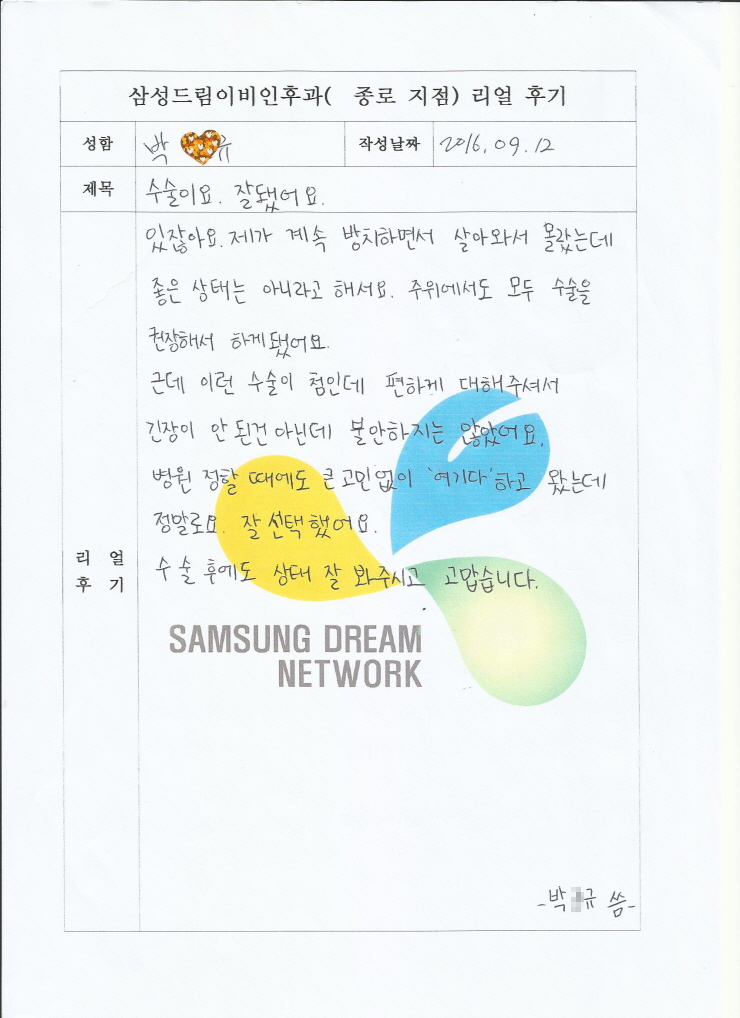 삼성드림이비인후과( 종로 지점) 리얼 후기
성함 박 규 작성날짜 2016. 09. 12
제목 수술이요. 잘됐어요.
있잖아요. 제가 계속 방치하면서 살아와서 몰랐는데
좋은 상태는 아니라고 해서요. 주위에서도 모두 수술을
권장해서 하게됐어요.
근데 이런 수술이 첨인데 편하게 대해주셔서
긴장이 안 된건 아닌데 불안하지는 않았어요.
병원 정할 때에도 큰 고민없이 '여기다'하고 왔는데
정말로요. 잘 선택했어요.
리얼
후기
수술 후에도 상태 잘 봐주시고 고맙습니다.
SAMSUNG DREAM
NETWORK
-박 규 씀-